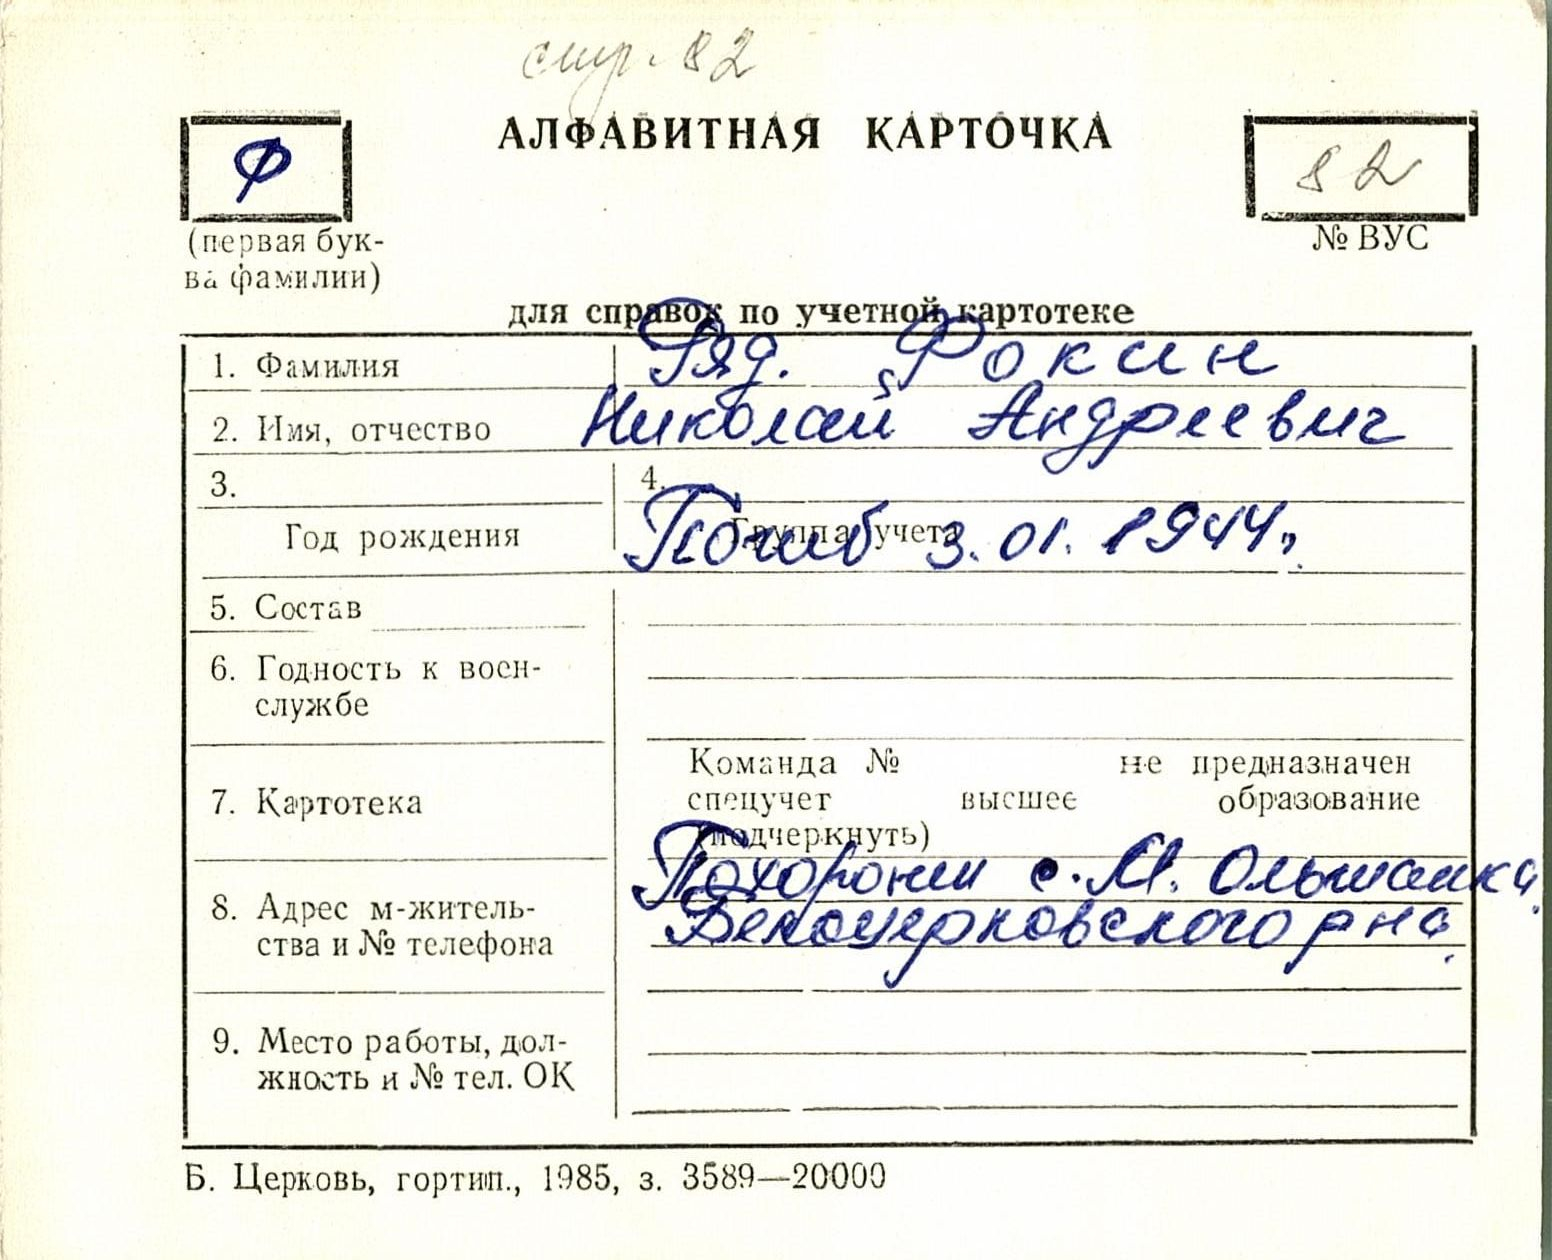 стр. 82
АЛФАВИТНАЯ КАРТОЧКА
Ф
82
(первая бук-
ва фамилии)
№ ВУС
для справок по учетной картотеке
1. Фамилия Ряд. Фокин
2. Имя, отчество Николай Андреевич
3. 4.
Год рождения Группа учета
Погиб 3.01.1944г.
5. Состав
6. Годность к воен-
службе
Команда № не предназначен
7. Картотека спецучет высшее образование
(подчеркнуть)
Похоронен с. М. Ольшанка
8. Адрес м-житель- Белоцерковского р-на.
ства и № телефона
9. Место работы, дол-
жность и № тел. ОК
Б. Церковь, гортип., 1985, з. 3589—20000